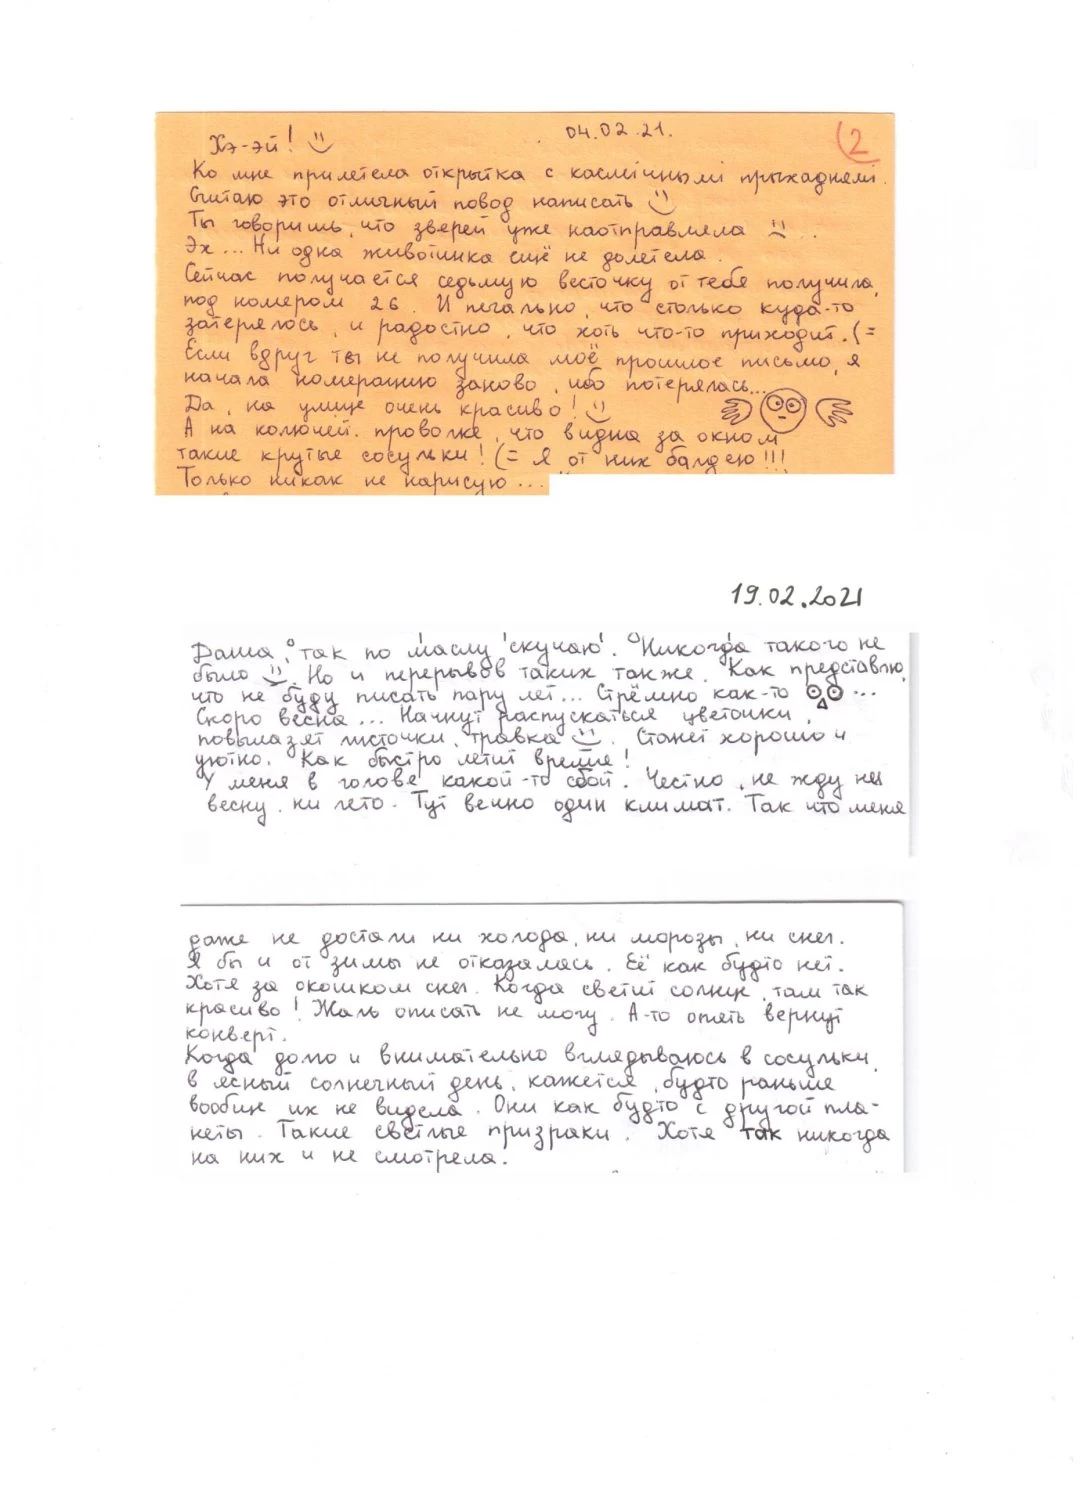 04.02.21.
2
Хэ-эй!
Ко мне прилетела открытка с касмічнымі прыхаднямі.
Считаю это отличный повод написать
Ты говоришь, что зверей уже наотправляла ...
Эх... Ни одна животинка ещё не долетела.
Сейчас получается седьмую весточку от тебя получила,
под номером 26. И печально, что столько куда-то
затерялось, и радостно, что хоть что-то приходит. (=
Если вдруг ты не получила моё прошлое письмо, я
начала номерацию заново, ибо потерялась...
Да, на улице очень красиво!
А на колючей проволке, что видна за окном
такие крутые сосульки! (= Я от них балдею!!!
Только никак не нарисую...
19.02.2021
Даша, так по маслу скучаю. Никогда такого не
было . Но и перерывов таких также. Как представлю,
что не буду писать пару лет... Стрёмно как-то ...
Скоро весна... Начнут распускаться цветочки,
повылазят листочки, травка . Станет хорошо и
уютно. Как быстро летит время!
У меня в голове какой-то сбой. Честно, не жду ни
весну, ни лето. Тут вечно один климат. Так что меня
даже не достали ни холода, ни морозы, ни снег.
Я бы и от зимы не отказалась. Её как будто нет.
Хотя за окошком снег. Когда светит солнце, там так
красиво! Жаль описать не могу. А-то опять вернут
конверт.
Когда долго и внимательно вглядываюсь в сосульки,
в ясный солнечный день, кажется, будто раньше
вообще их не видела. Они как будто с другой пла-
неты. Такие светлые призраки. Хотя так никогда
на них и не смотрела.